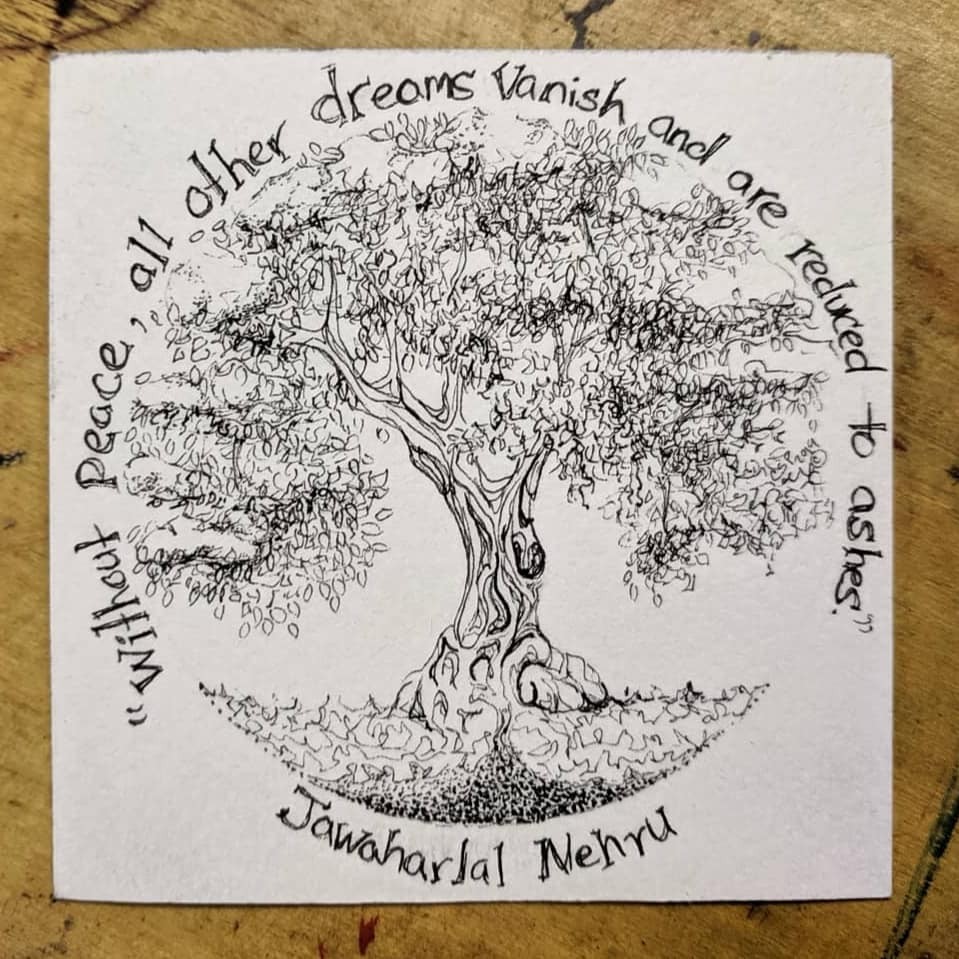 "Without peace, all other dreams Vanish and are reduced to ashes."
Jawaharlal Nehru